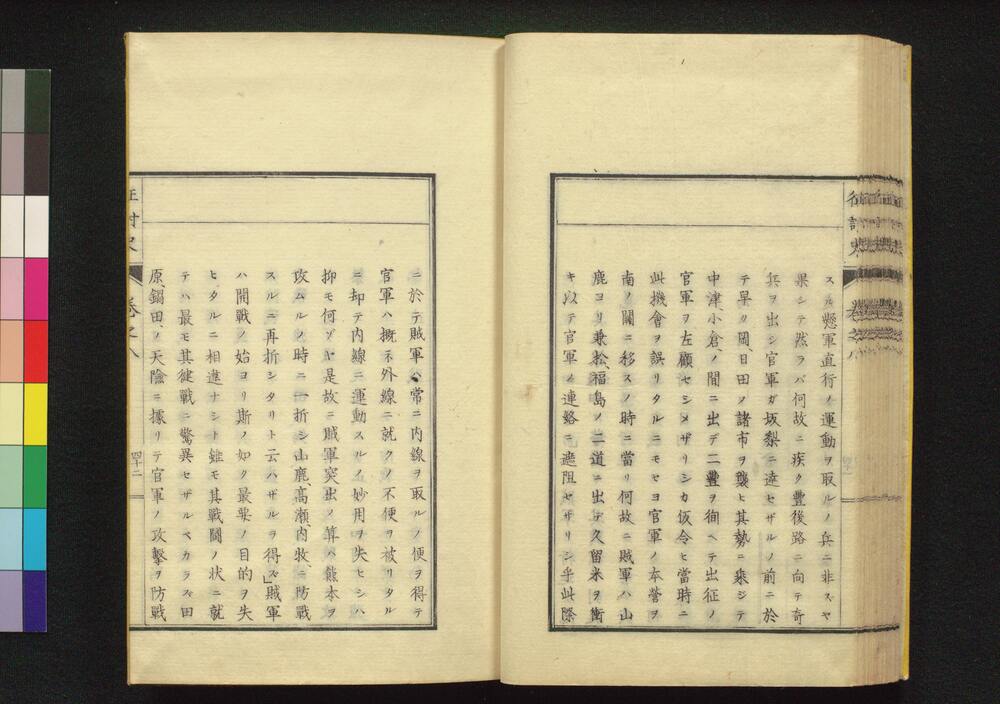 スル懸軍直行ノ運動ヲ取ルノ兵ニ非スヤ
果シテ然ラバ何故ニ疾ク豊後路ニ向テ奇
兵ヲ出シ官軍ガ坂梨ニ達セザルノ前ニ於
テ早ク岡日田ノ諸市ヲ襲ヒ其勢ニ乗ジテ
中津小倉ノ間ニ出デ二豊ヲ徇ヘテ出征ノ
官軍ヲ左顧セシメザリシカ仮令ヒ當時ニ
此機會ヲ誤リタルニモセヨ官軍ノ本營ヲ
南ノ關ニ移スノ時ニ當リ何故ニ賊軍ハ山
鹿ヨリ兼松、福島ノ二道ニ出テ久留米ヲ衝
キ以テ官軍ノ連絡ニ遮阻セザリシ乎此際
ニ於テ賊軍ハ常ニ内線ヲ取ルノ便ヲ得テ
官軍ハ概ネ外線ニ就クノ不便ヲ被リタル
ニ却テ内線ニ運動スルノ妙用ヲ失ヒシハ
抑モ何ゾヤ是故ニ賊軍突出ノ算ハ熊本ヲ
攻ムルノ時ニ一折シ山鹿、高瀬、内牧、ニ防戰
スルニ再折シタリト云ハザルヲ得ズ」賊軍
ハ開戰ノ始ヨリ斯ノ如ク最要ノ目的ヲ失
ヒタルニ相違ナシト雖モ其戰鬪ノ状ニ就
テハ最モ其健戰ニ驚異セザルベカラズ田
原鍋田、ノ天險ニ據リテ官軍ノ攻擊ヲ防戰
征討史
卷之八
四十二